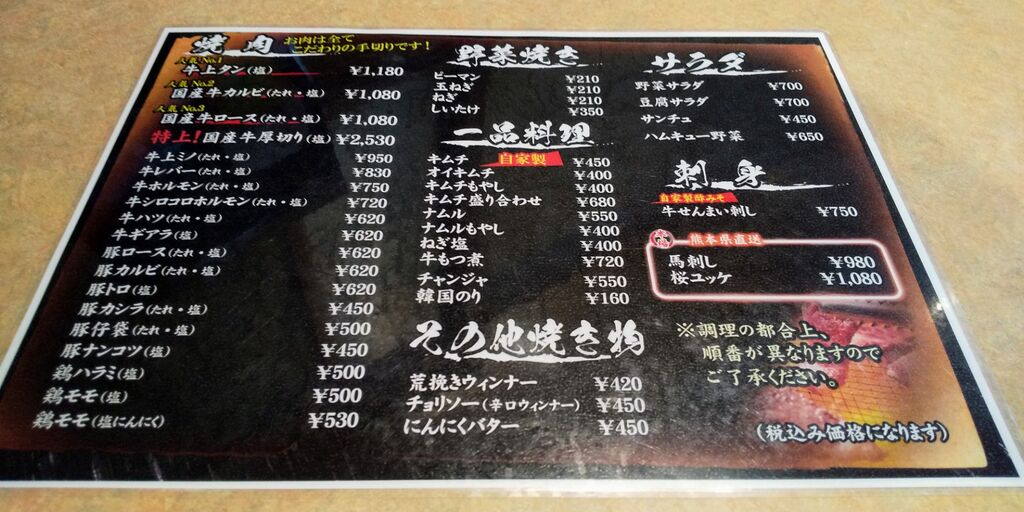 焼肉 お肉は全て
こだわりの手切りです!
人気No.1
牛上タン(塩) ¥1,180
人気No.2
国産牛カルビ(たれ・塩) ¥1,080
人気No.3
国産牛ロース(たれ・塩) ¥1,080
特上!国産牛厚切り(塩) ¥2,530
牛上ミノ(たれ・塩) ¥950
牛レバー(たれ・塩) ¥830
牛ホルモン(たれ・塩) ¥750
牛シロコロホルモン(たれ・塩) ¥720
牛ハツ(たれ・塩) ¥620
牛ギアラ(たれ・塩) ¥620
豚ロース(たれ・塩) ¥620
豚カルビ(たれ・塩) ¥620
豚トロ(塩) ¥620
豚カシラ(たれ・塩) ¥450
豚仔袋(たれ・塩) ¥500
豚ナンコツ(塩) ¥450
鶏ハラミ(塩) ¥500
鶏モモ(塩) ¥500
鶏モモ(塩にんにく) ¥530
野菜焼き
ピーマン ¥210
玉ねぎ ¥210
ねぎ ¥210
しいたけ ¥350
一品料理
キムチ 自家製 ¥450
オイキムチ ¥400
キムチもやし ¥400
キムチ盛り合わせ ¥680
ナムル ¥550
ナムルもやし ¥400
ねぎ塩 ¥400
牛もつ煮 ¥720
チャンジャ ¥550
韓国のり ¥160
その他焼き物
荒挽きウィンナー ¥420
チョリソー(辛口ウィンナー) ¥450
にんにくバター ¥450
サラダ
野菜サラダ ¥700
豆腐サラダ ¥700
サンチュ ¥450
ハムキュー野菜 ¥650
刺身
自家製酢みそ
牛せんまい刺し ¥750
熊本県直送
馬刺し ¥980
桜ユッケ ¥1,080
※調理の都合上、
順番が異なりますので
ご了承ください。
(税込み価格になります)